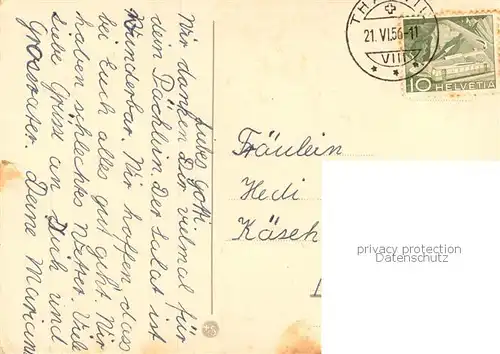 Liebes Gotti
Wir danken Dir vielmal für
dein Päcklun. Der Salat ist
Wunderbar. Wir hoffen dass
bei Euch alles gut geht. Wir
haben schlechtes Wetter. Viele
liebe Grüsse an Dich und
Grossvater. Deine Mariann
THALWIL
21. VI. 56-11
VIII
10 HELVETIA
Fräulein
Hedi
Käseh
privacy protection
Datenschutz